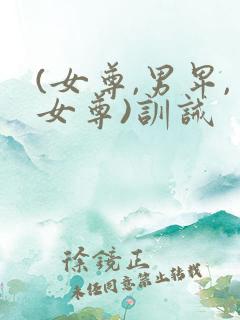 (女尊,男卑,
女尊)訓誡
徐鏡正
未经同意禁止转载